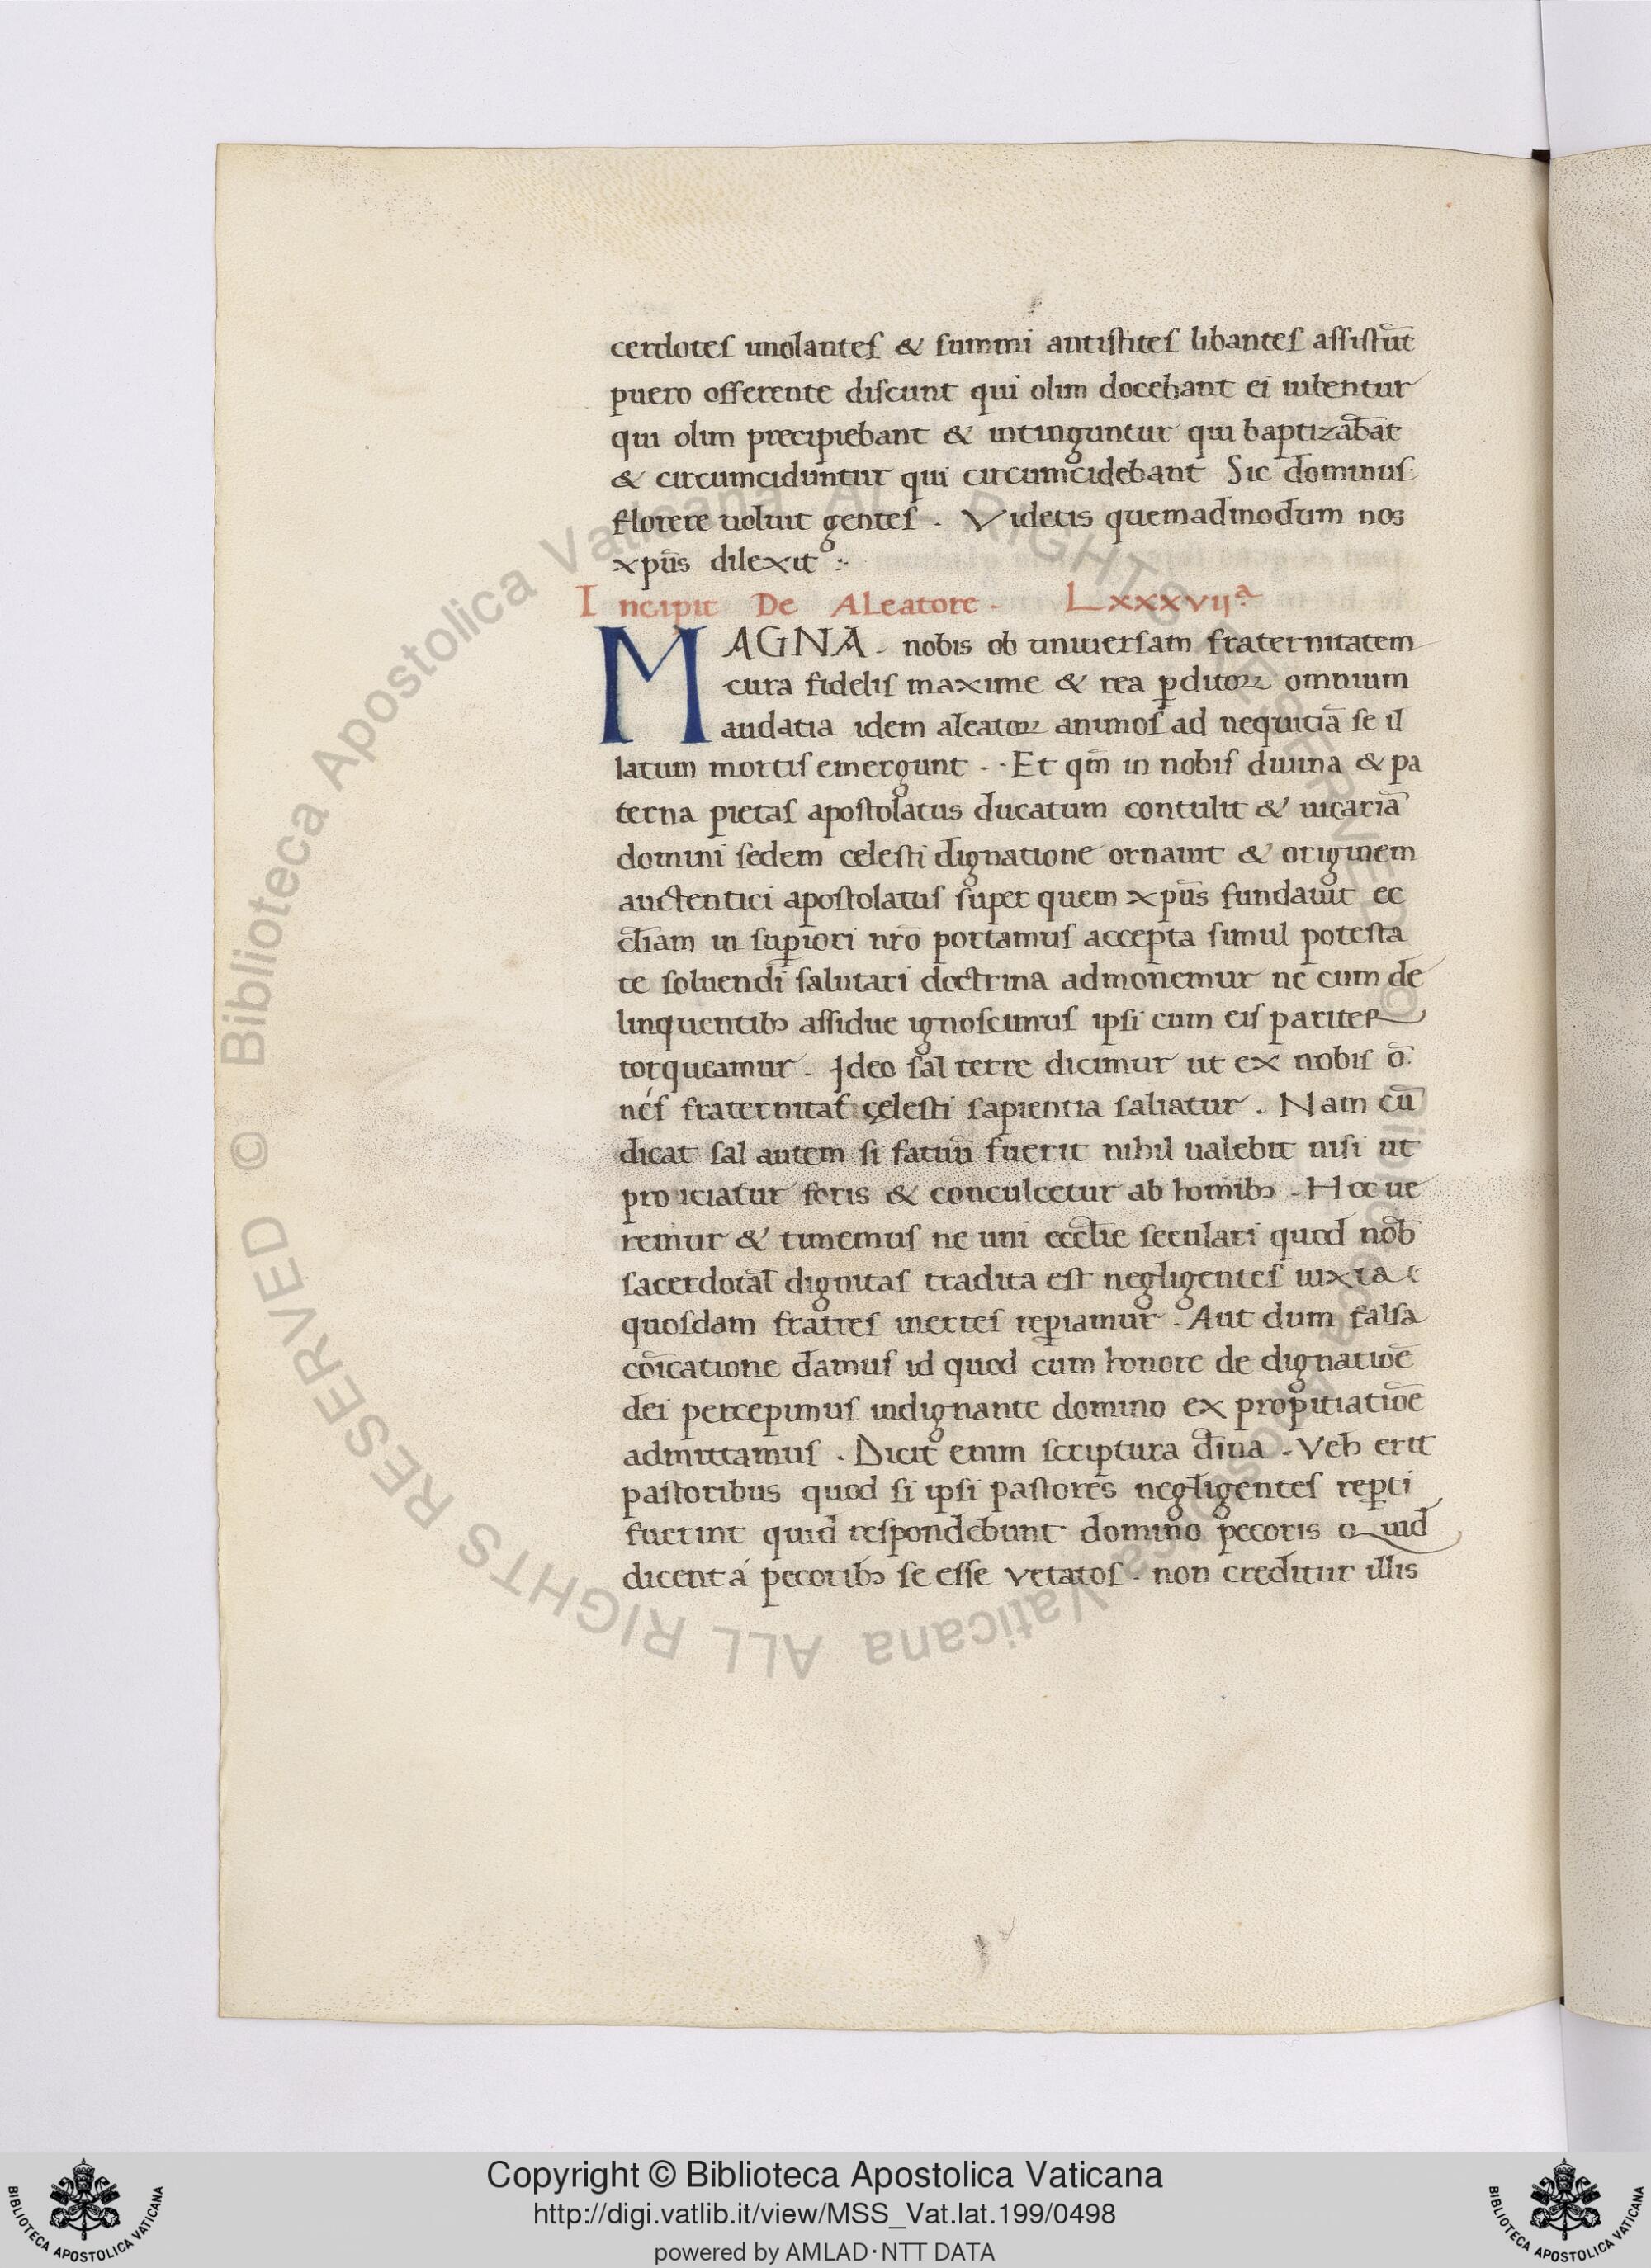 cerdotes imolantes & summi antistites libantes assistūt
puero offerente discunt qui olim docebant ei iubentur
qui olim precipiebant & intinguntur qui baptizabāt
& circumciduntur qui circumcidebant Sic dominus
florere uoluit gentes . Videtis quemadmodum nos
xp̄us dilexit :·
Incipit De Aleatore . Lxxxvijª
MAGNA . nobis ob uniuersam fraternitatem
cura fidelis maxime & rea ꝑditoꝝ omnium
audatia idem aleatoꝝ animos ad nequitiā se il
latum mortis emergunt . . Et qm̄ in nobis diuina & pa
terna pietas apostolatus ducatum contulit & uicariā
domini sedem celesti dignatione ornauit & originem
auctentici apostolatus super quem xp̄us fundauit ec
cl̄iam in suꝑiori nr̄o portamus accepta simul potesta
te soluendi salutari doctrina admonemur ne cum de
linquentibꝫ assidue ignoscimus ipsi cum eis pariter
torqueamur . Ideo sal terre dicimur ut ex nobis ō
nés fraternitas cęlesti sapientia saliatur . Nam cū
dicat sal autem si fatuū fuerit nihil ualebit nisi ut
proiciatur foris & conculcetur ab homībꝫ . Hoc ue
remur & timemus ne uni eccl̄ie seculari quod nob̄
sacerdotal̄ dignitas tradita est negligentes iuxta
quosdam fratres inertes reꝑiamur . Aut dum falsa
cōicatione damus id quod cum honore de dignatiōe
dei percepimus indignante domino ex propitiatiōe
admittamus . Dicit enim scriptura diīna . Veh erit
pastoribus quod si ipsi pastores negligentes reꝑti
fuerint quid respondebunt domino pecoris Quid
dicent á pecoribꝫ se esse vetatos . non creditur illis
© Biblioteca Apostolica Vaticana ALL RIGHTS RESERVED
© Biblioteca Apostolica Vaticana ALL RIGHTS RESERVED
Copyright © Biblioteca Apostolica Vaticana
http://digi.vatlib.it/view/MSS_Vat.lat.199/0498
powered by AMLAD·NTT DATA
BIBLIOTECA APOSTOLICA VATICANA
BIBLIOTECA APOSTOLICA VATICANA